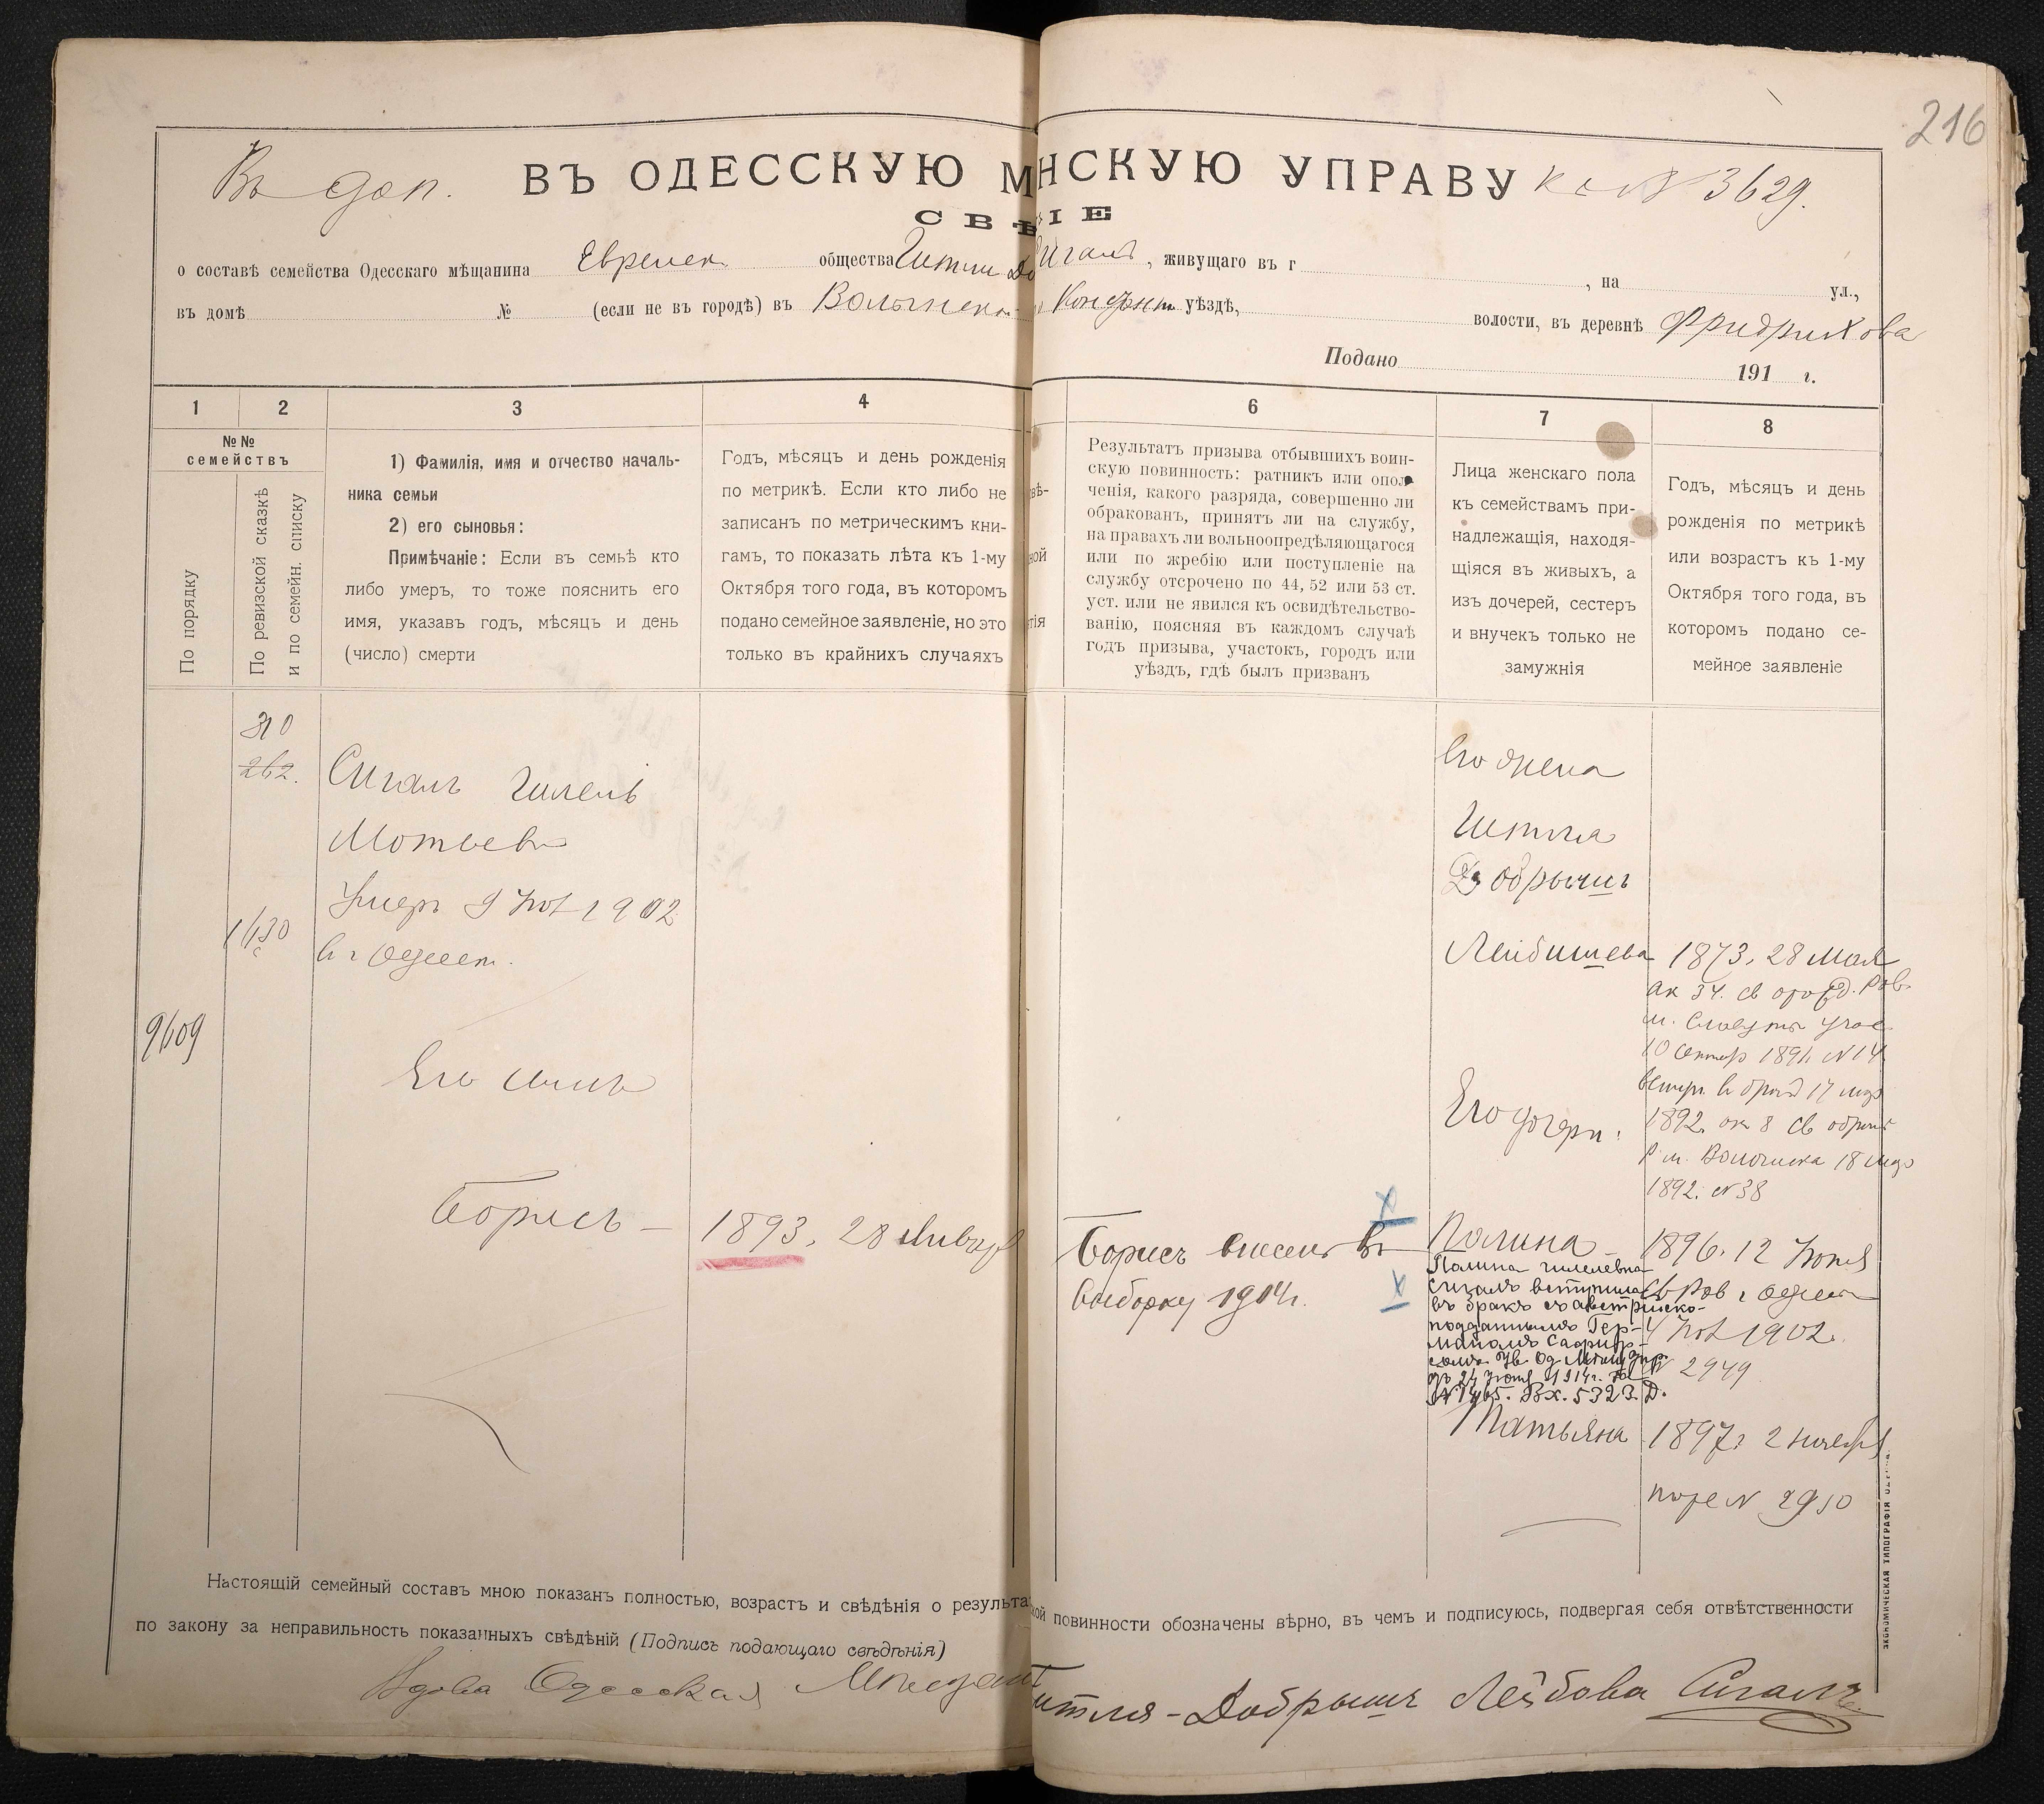 216
Въ доп. ВЪ ОДЕССКУЮ М НСКУЮ УПРАВУ к № 3629.
СВѢ ІЕ
о составѣ семейства Одесскаго мѣщанина Еврейск общества Гитли До игалъ, живущаго въ г , на ул.,
въ домѣ № (если не въ городѣ) въ Волынско уѣздѣ, волости, въ деревнѣ Фридрихова
Подано 191 г.
1 2 3 4 6 7 8
№№
семействъ
По порядку
По ревизской сказкѣ
и по семейн. списку
1) Фамилія, имя и отчество началь-
ника семьи
2) его сыновья:
Примѣчаніе: Если въ семьѣ кто
либо умеръ, то тоже пояснить его
имя, указавъ годъ, мѣсяцъ и день
(число) смерти
Годъ, мѣсяцъ и день рожденія
по метрикѣ. Если кто либо не
записанъ по метрическимъ кни-
гамъ, то показать лѣта къ 1-му
Октября того года, въ которомъ
подано семейное заявленіе, но это
только въ крайнихъ случаяхъ
вѣ-
ной
тія
Результатъ призыва отбывшихъ воин-
скую повинность: ратникъ или опол-
ченія, какого разряда, совершенно ли
обракованъ, принятъ ли на службу,
на правахъ ли вольноопредѣляющагося
или по жребію или поступленіе на
службу отсрочено по 44, 52 или 53 ст.
уст. или не явился къ освидѣтельство-
ванію, поясняя въ каждомъ случаѣ
годъ призыва, участокъ, городъ или
уѣздъ, гдѣ былъ призванъ
Лица женскаго пола
къ семействамъ при-
надлежащія, находя-
щіяся въ живыхъ, а
изъ дочерей, сестеръ
и внучекъ только не
замужнія
Годъ, мѣсяцъ и день
рожденія по метрикѣ
или возрастъ къ 1-му
Октября того года, въ
которомъ подано се-
мейное заявленіе
262.
1630
9609
Сигалъ Гилель
Мотьев
Умеръ 9 1902
в г Одессѣ.
Его сынъ
Борисъ — 1893, 28 Января
Борисъ внесенъ въ
выборку 1914 г.
Его жена
Гитля
Добрышъ
Лейбишева 1873, 28 Мая
ак 34. св Рав.
м. Славута
10 1891 № 14
вступ. в 17
1892. ак 8 св
Р м. Волочиска 18
1892. № 38
Его дочери:
Полина — 1896. 12 Іюня
св Рав г Одессы
4 1902.
№ 2949
Полина Гилелевна
Сигалъ вступила
въ бракъ съ австрійско-
подданнымъ Гер-
маномъ
24 Іюня 1914 г. за
№ 1465. Вх. 5323. Д.
Татьяна 1897, 2 ноября
№ 2950
ЭКОНОМИЧЕСКАЯ ТИПОГРАФІЯ
Настоящій семейный составъ мною показанъ полностью, возрастъ и свѣдѣнія о результа кой повинности обозначены вѣрно, въ чемъ и подписуюсь, подвергая себя отвѣтственности
по закону за неправильность показанныхъ свѣдѣній (Подпись подающаго свѣдѣнія)
Вдова Одесская Мѣщан итля-Добрышъ Лейбова Сигалъ